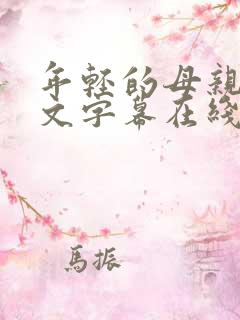 年轻的母親
文字幕在綫
馬振